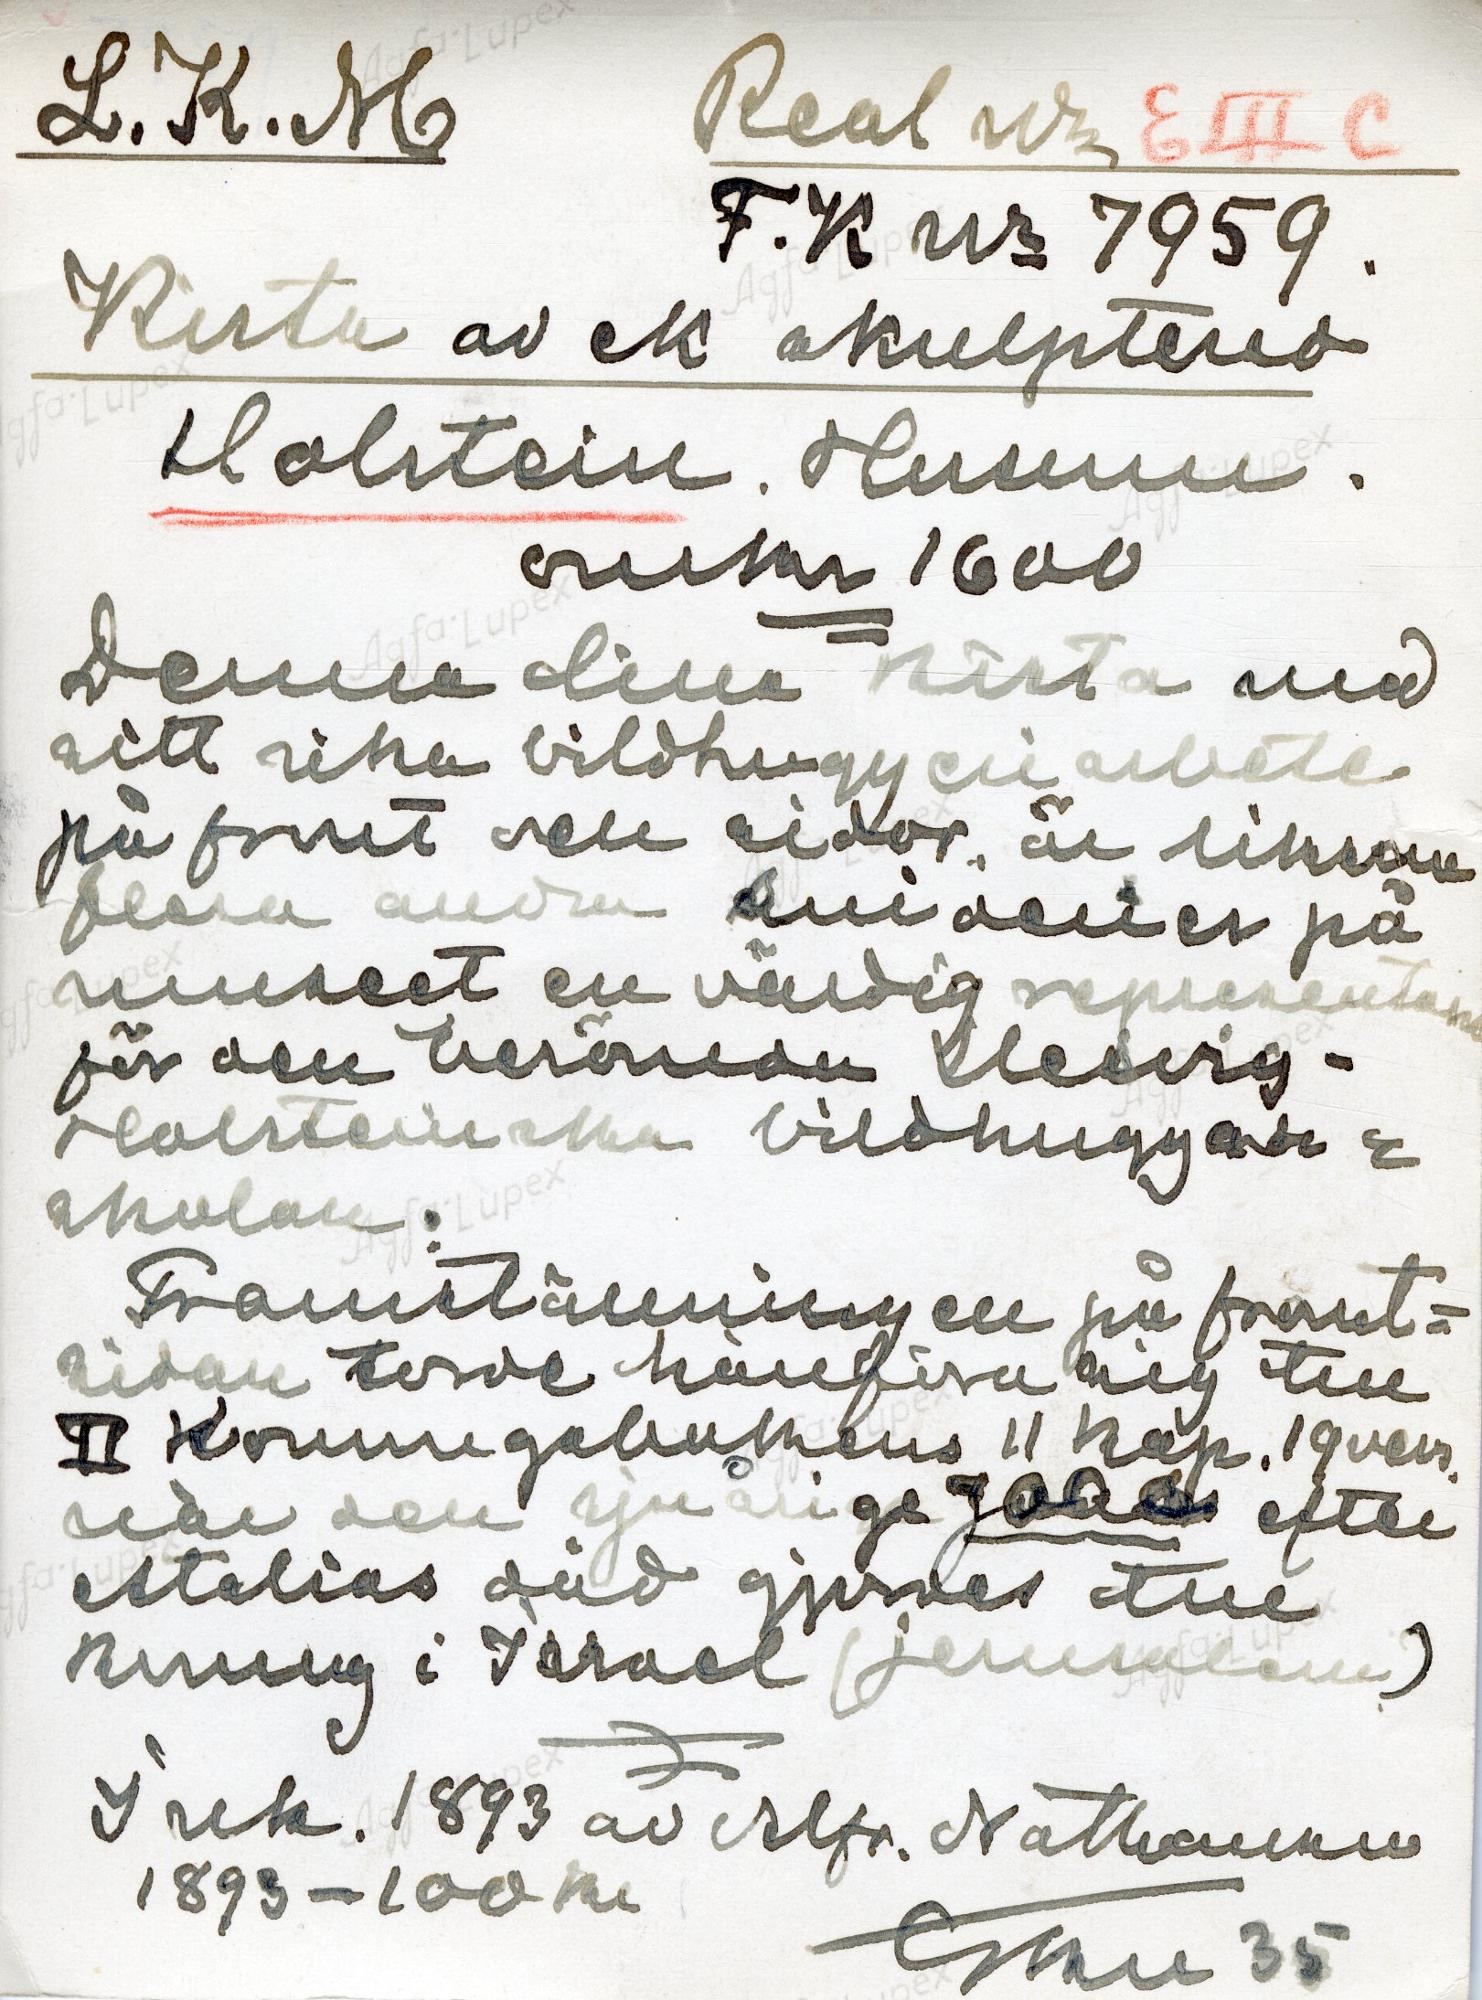 L.K.M
Real nr E III C
F.K nr 7959.
Kista av ek skulpterad
Holstein. Husum.
omkr 1600
Denna fina kista med
sitt rika bildhuggeriarbete
på front och sidor, är liksom
flera andra snidenier på
museet en värdig representant
för den berömda Slesvig-
Holsteinska bildhuggare=
skolan.
Framställningen på front=
sidan torde hänföra sig till
II Konungabokens 11 kap. 19 vers.
när den sjuårige Joas efter
Atalias död gjordes till
konung i Israel (Jerusalem)
Ink. 1893 av Alfr. Nathanson
1893 - 100 kr
35
Agfa-Lupex